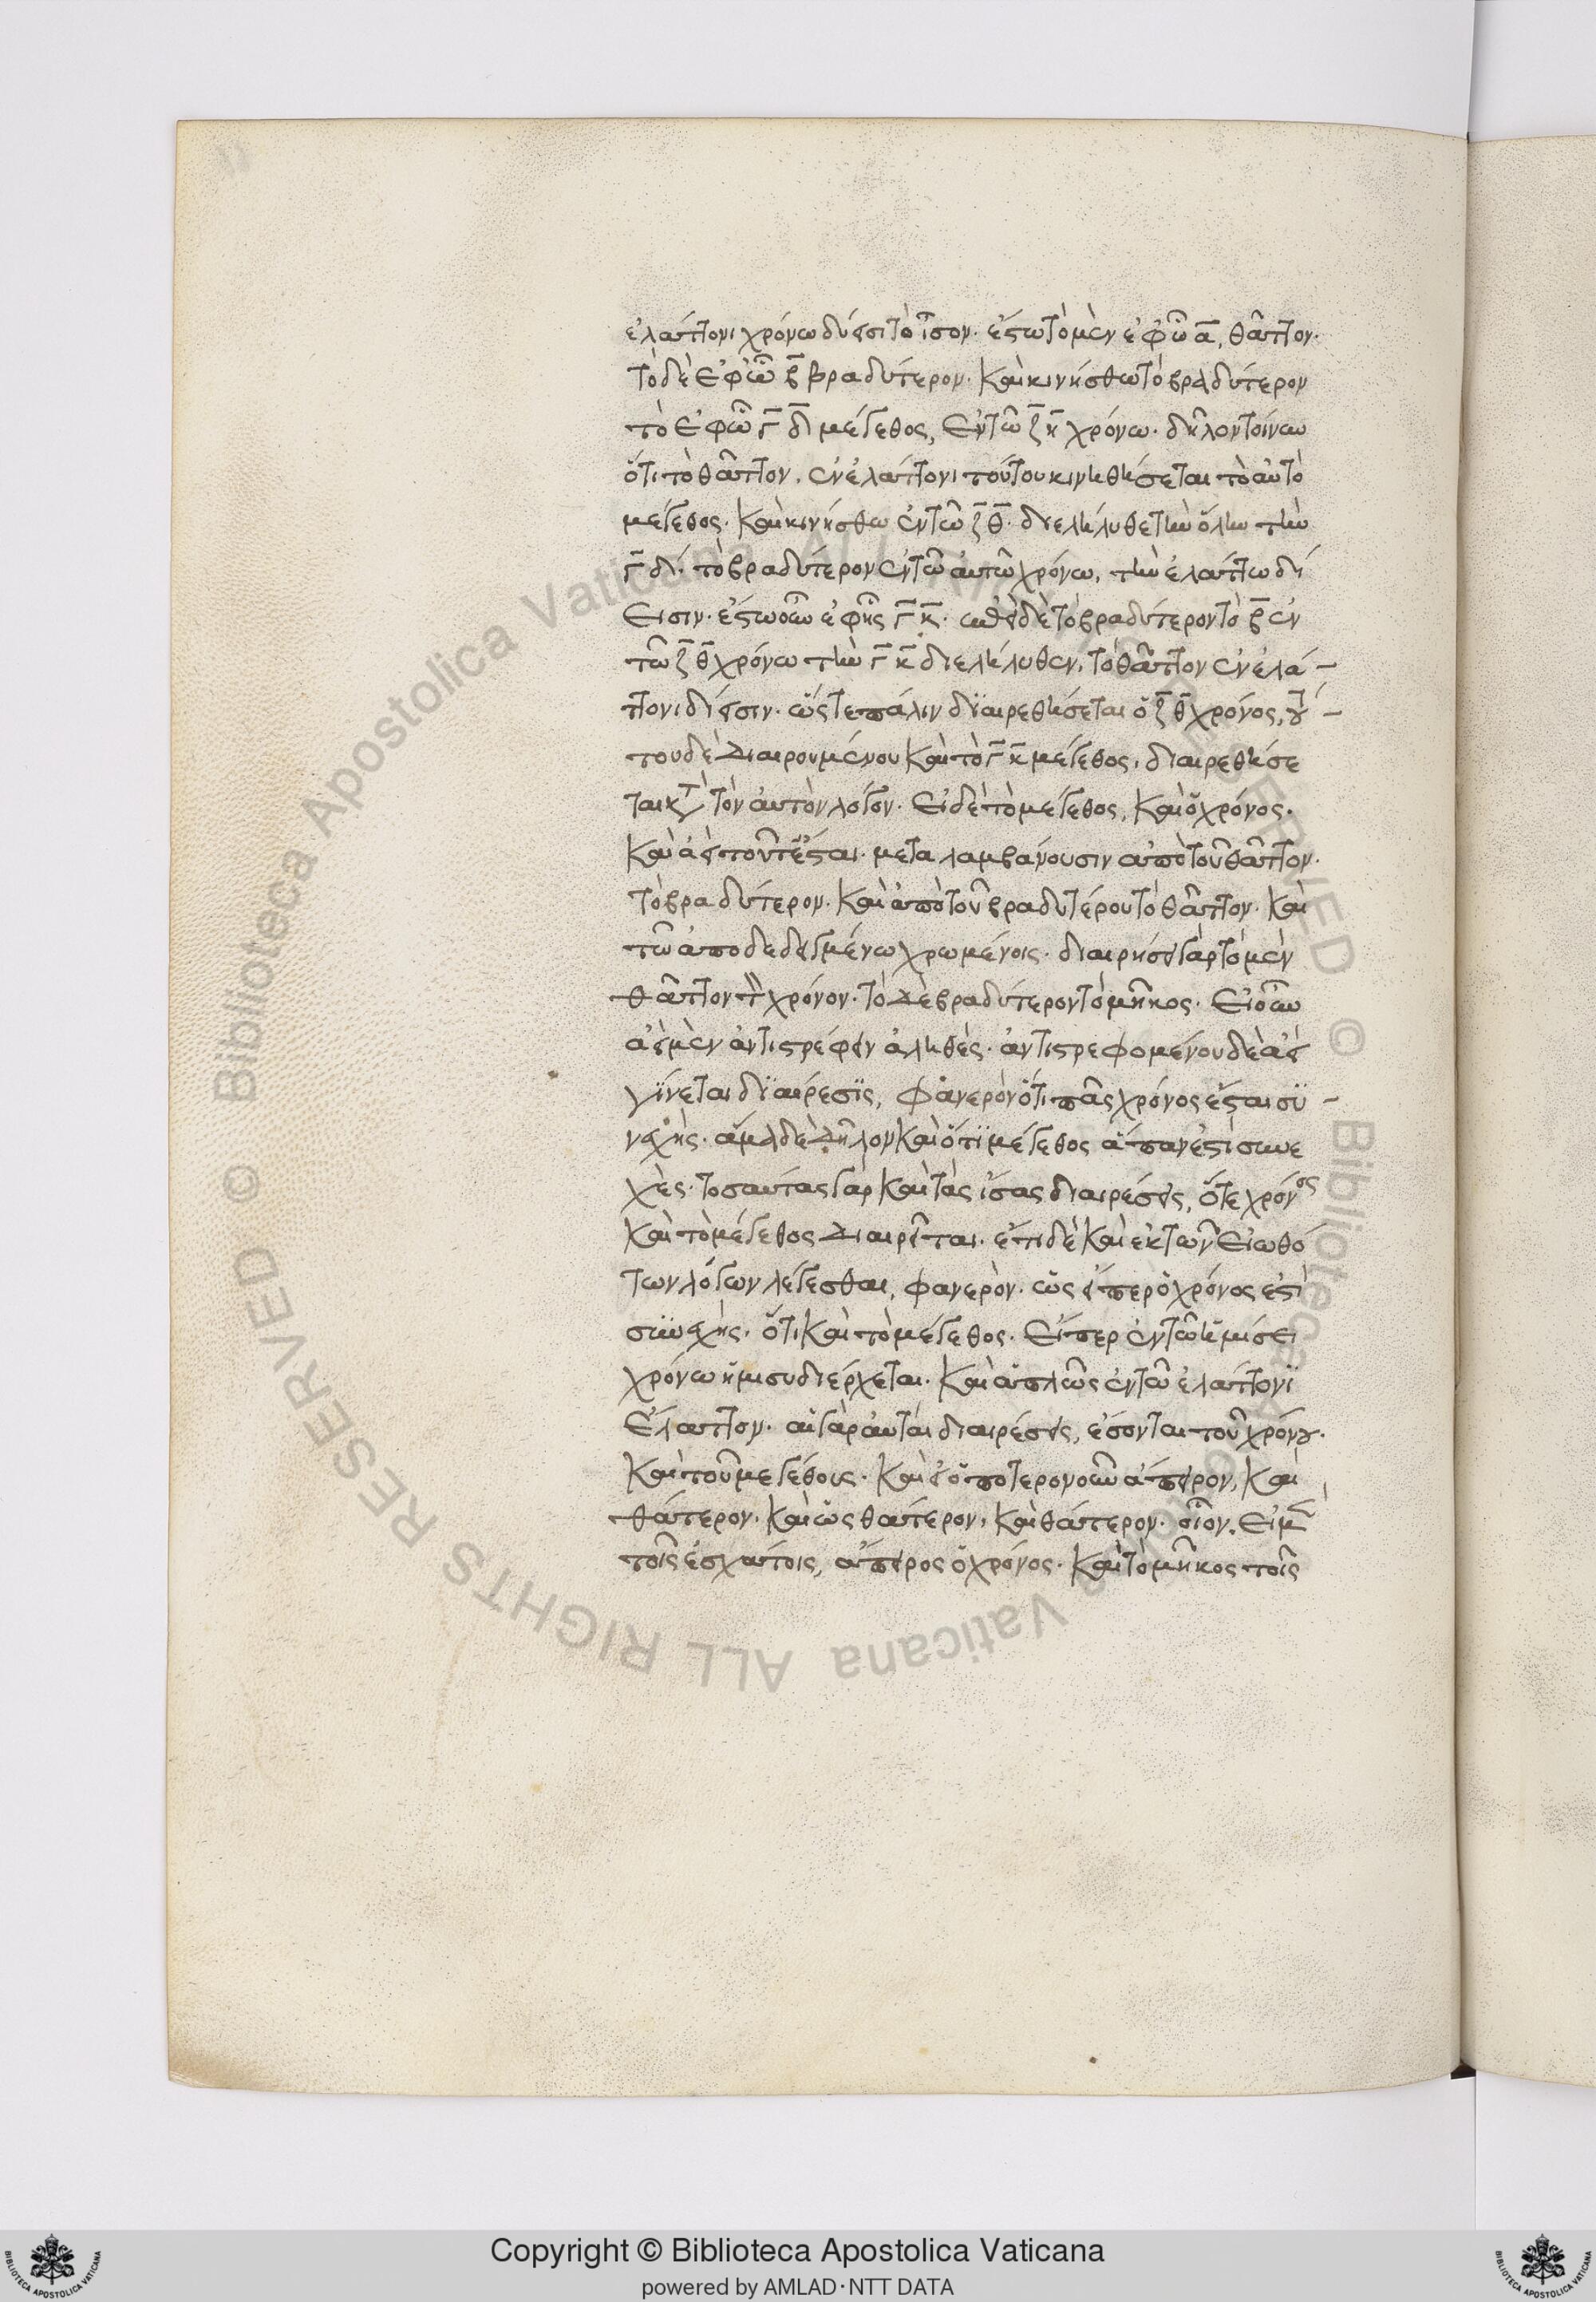 ἐλάττονι χρόνω δίεισι τὸ ἶσον· ἔστω τὸ μὲν ἐφ ὧ α, θᾶττον·
τὸ δὲ ἐφ ὧ β βραδύτερον· καὶ κινήσθω τὸ βραδύτερον
τὸ ἐφ ὧ γ δ μέγεθος, ἐν τῶ ζ η χρόνω· δῆλον τοίνυν
ὅτι τὸ θᾶττον, ἐν ἐλάττονι τούτου κινηθήσεται τὸ αὐτὸ
μέγεθος· καὶ κινήσθω ἐν τῶ ζ θ· διελήλυθε τὴν ὅλην τὴν
γ δ· τὸ βραδύτερον ἐν τῶ αὐτῶ χρόνω, τὴν ἐλάττω δί
εισιν· ἔστω οὖν ἐφ ῆς γ κ· ἐπεὶ δὲ τὸ βραδύτερον τὸ β ἐν
τῶ ζ θ χρόνω τὴν γ κ διελήλυθεν, τὸ θᾶττον ἐν ἐλά-
ττονι δίεισιν· ὥστε πάλιν διαιρεθήσεται ὁ ζ θ χρόνος, τού-
του δὲ διαιρουμένου καὶ τὸ γ κ μέγεθος, διαιρεθήσε
ται κατὰ τὸν αὐτὸν λόγον· εἰ δὲ τὸ μέγεθος, καὶ ὁ χρόνος·
καὶ ἀεὶ τοῦτ ἔσται· μεταλαμβάνουσιν ἀπὸ τοῦ θᾶττον·
τὸ βραδύτερον· καὶ ἀπὸ τοῦ βραδυτέρου τὸ θᾶττον· καὶ
τῶ ἀποδεδειγμένω χρωμένοις· διαιρήσει γὰρ τὸ μὲν
θᾶττον τὸν χρόνον· τὸ δὲ βραδύτερον τὸ μῆκος· εἰ οὖν
ἀεὶ μὲν ἀντιστρέφειν ἀληθὲς· ἀντιστρεφομένου δὲ ἀεὶ
γίνεται διαίρεσϊς, φανερὸν ὅτι πᾶς χρόνος ἔσται συ-
νεχὴς· ἅμα δὲ δῆλον καὶ ὅτι μέγεθος ἅπαν ἐστὶ συνε
χὲς· τοσαύτας γὰρ καὶ τὰς ἴσας διαιρέσεις, ὅτε χρόνος
καὶ τὸ μέγεθος διαιρεῖται· ἔτι δὲ καὶ ἐκ τῶν εἰωθό
των λόγων λέγεσθαι, φανερὸν· ὡς εἴπερ ὁ χρόνος ἐστὶ
συνεχὴς, ὅτι καὶ τὸ μέγεθος· εἴπερ ἐν τῶ ἡμίσει
χρόνω ἥμισυ διέρχεται· καὶ ἁπλῶς ἐν τῶ ἐλάττονϊ
ἔλαττον· αἱ γὰρ αὐταὶ διαιρέσεις, ἔσονται τοῦ χρόνου·
καὶ τοῦ μεγέθους· καὶ εἰ ὁποτερονοῦν ἄπειρον, καὶ
θάτερον· καὶ ὡς θάτερον, καὶ θάτερον· οἷον, εἰ μὲν
τοῖς ἐσχάτοις, ἄπειρος ὁ χρόνος· καὶ τὸ μῆκος τοῖς
Copyright © Biblioteca Apostolica Vaticana
powered by AMLAD·NTT DATA
© Biblioteca Apostolica Vaticana ALL RIGHTS RESERVED
© Biblioteca Apostolica Vaticana ALL RIGHTS RESERVED
BIBLIOTECA APOSTOLICA VATICANA
BIBLIOTECA APOSTOLICA VATICANA